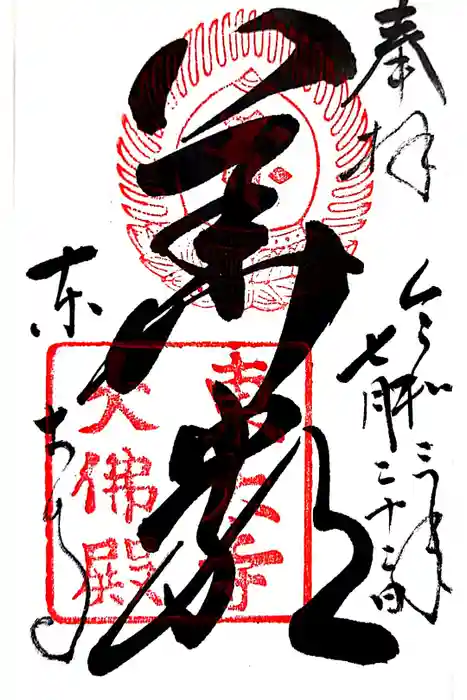 奉拝
令和三年
七月二十二日
華厳
東大寺
東大寺
大佛殿